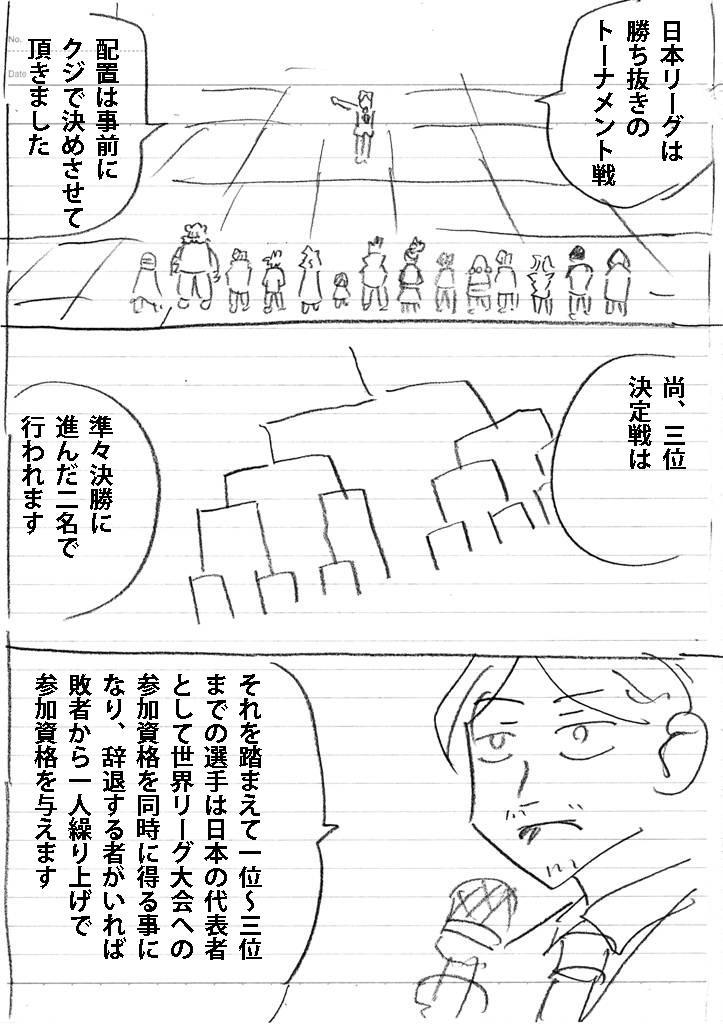 日本リーグは
勝ち抜きの
トーナメント戦
配置は事前に
クジで決めさせて
頂きました
尚、三位
決定戦は
準々決勝に
進んだ二名で
行われます
それを踏まえて一位～三位
までの選手は日本の代表者
として世界リーグ大会への
参加資格を同時に得る事に
なり、辞退する者がいれば
敗者から一人繰り上げで
参加資格を与えます
No.
Date